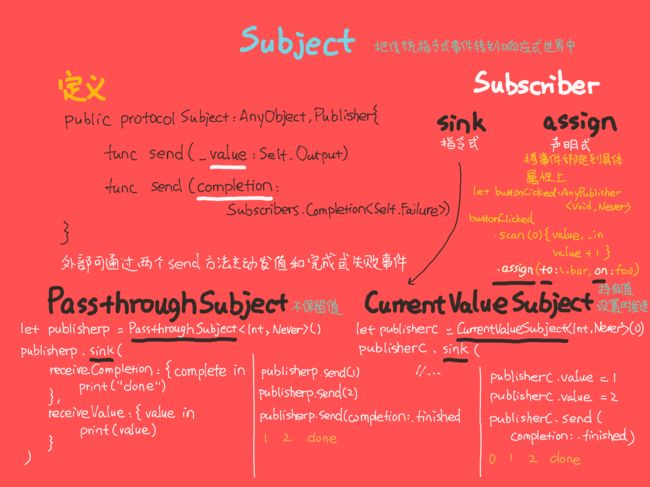 Subject 把传统指令式事件转到响应式世界中
定义
public protocol Subject: AnyObject, Publisher{
func send(_ value: Self.Output)
func send(completion:
Subscribers.Completion<Self.Failure>)
}
外部可通过两个send方法主动发值和完成或失败事件
Subscriber
sink
指令式
assign
声明式
将事件绑定到具体
属性上
let buttonClicked: AnyPublisher
<Void, Never>
buttonClicked
.scan(0){value, _ in
value + 1 }
.assign(to: \.bar, on: foo)
PassthroughSubject 不保留值
let publisherp = PassthroughSubject<Int, Never>()
publisherp.sink(
receiveCompletion: { complete in
print("done")
},
receiveValue: { value in
print(value)
}
)
publisherp.send(1)
publisherp.send(2)
publisherp.send(completion: .finished
1 2 done
CurrentValueSubject 持有值
设置时发送
let publisherc = CurrentValueSubject<Int, Never>(0)
publisherC.sink(
//...
publisherC.value = 1
publisherC.value = 2
publisherC.send(
completion: .finished)
0 1 2 done